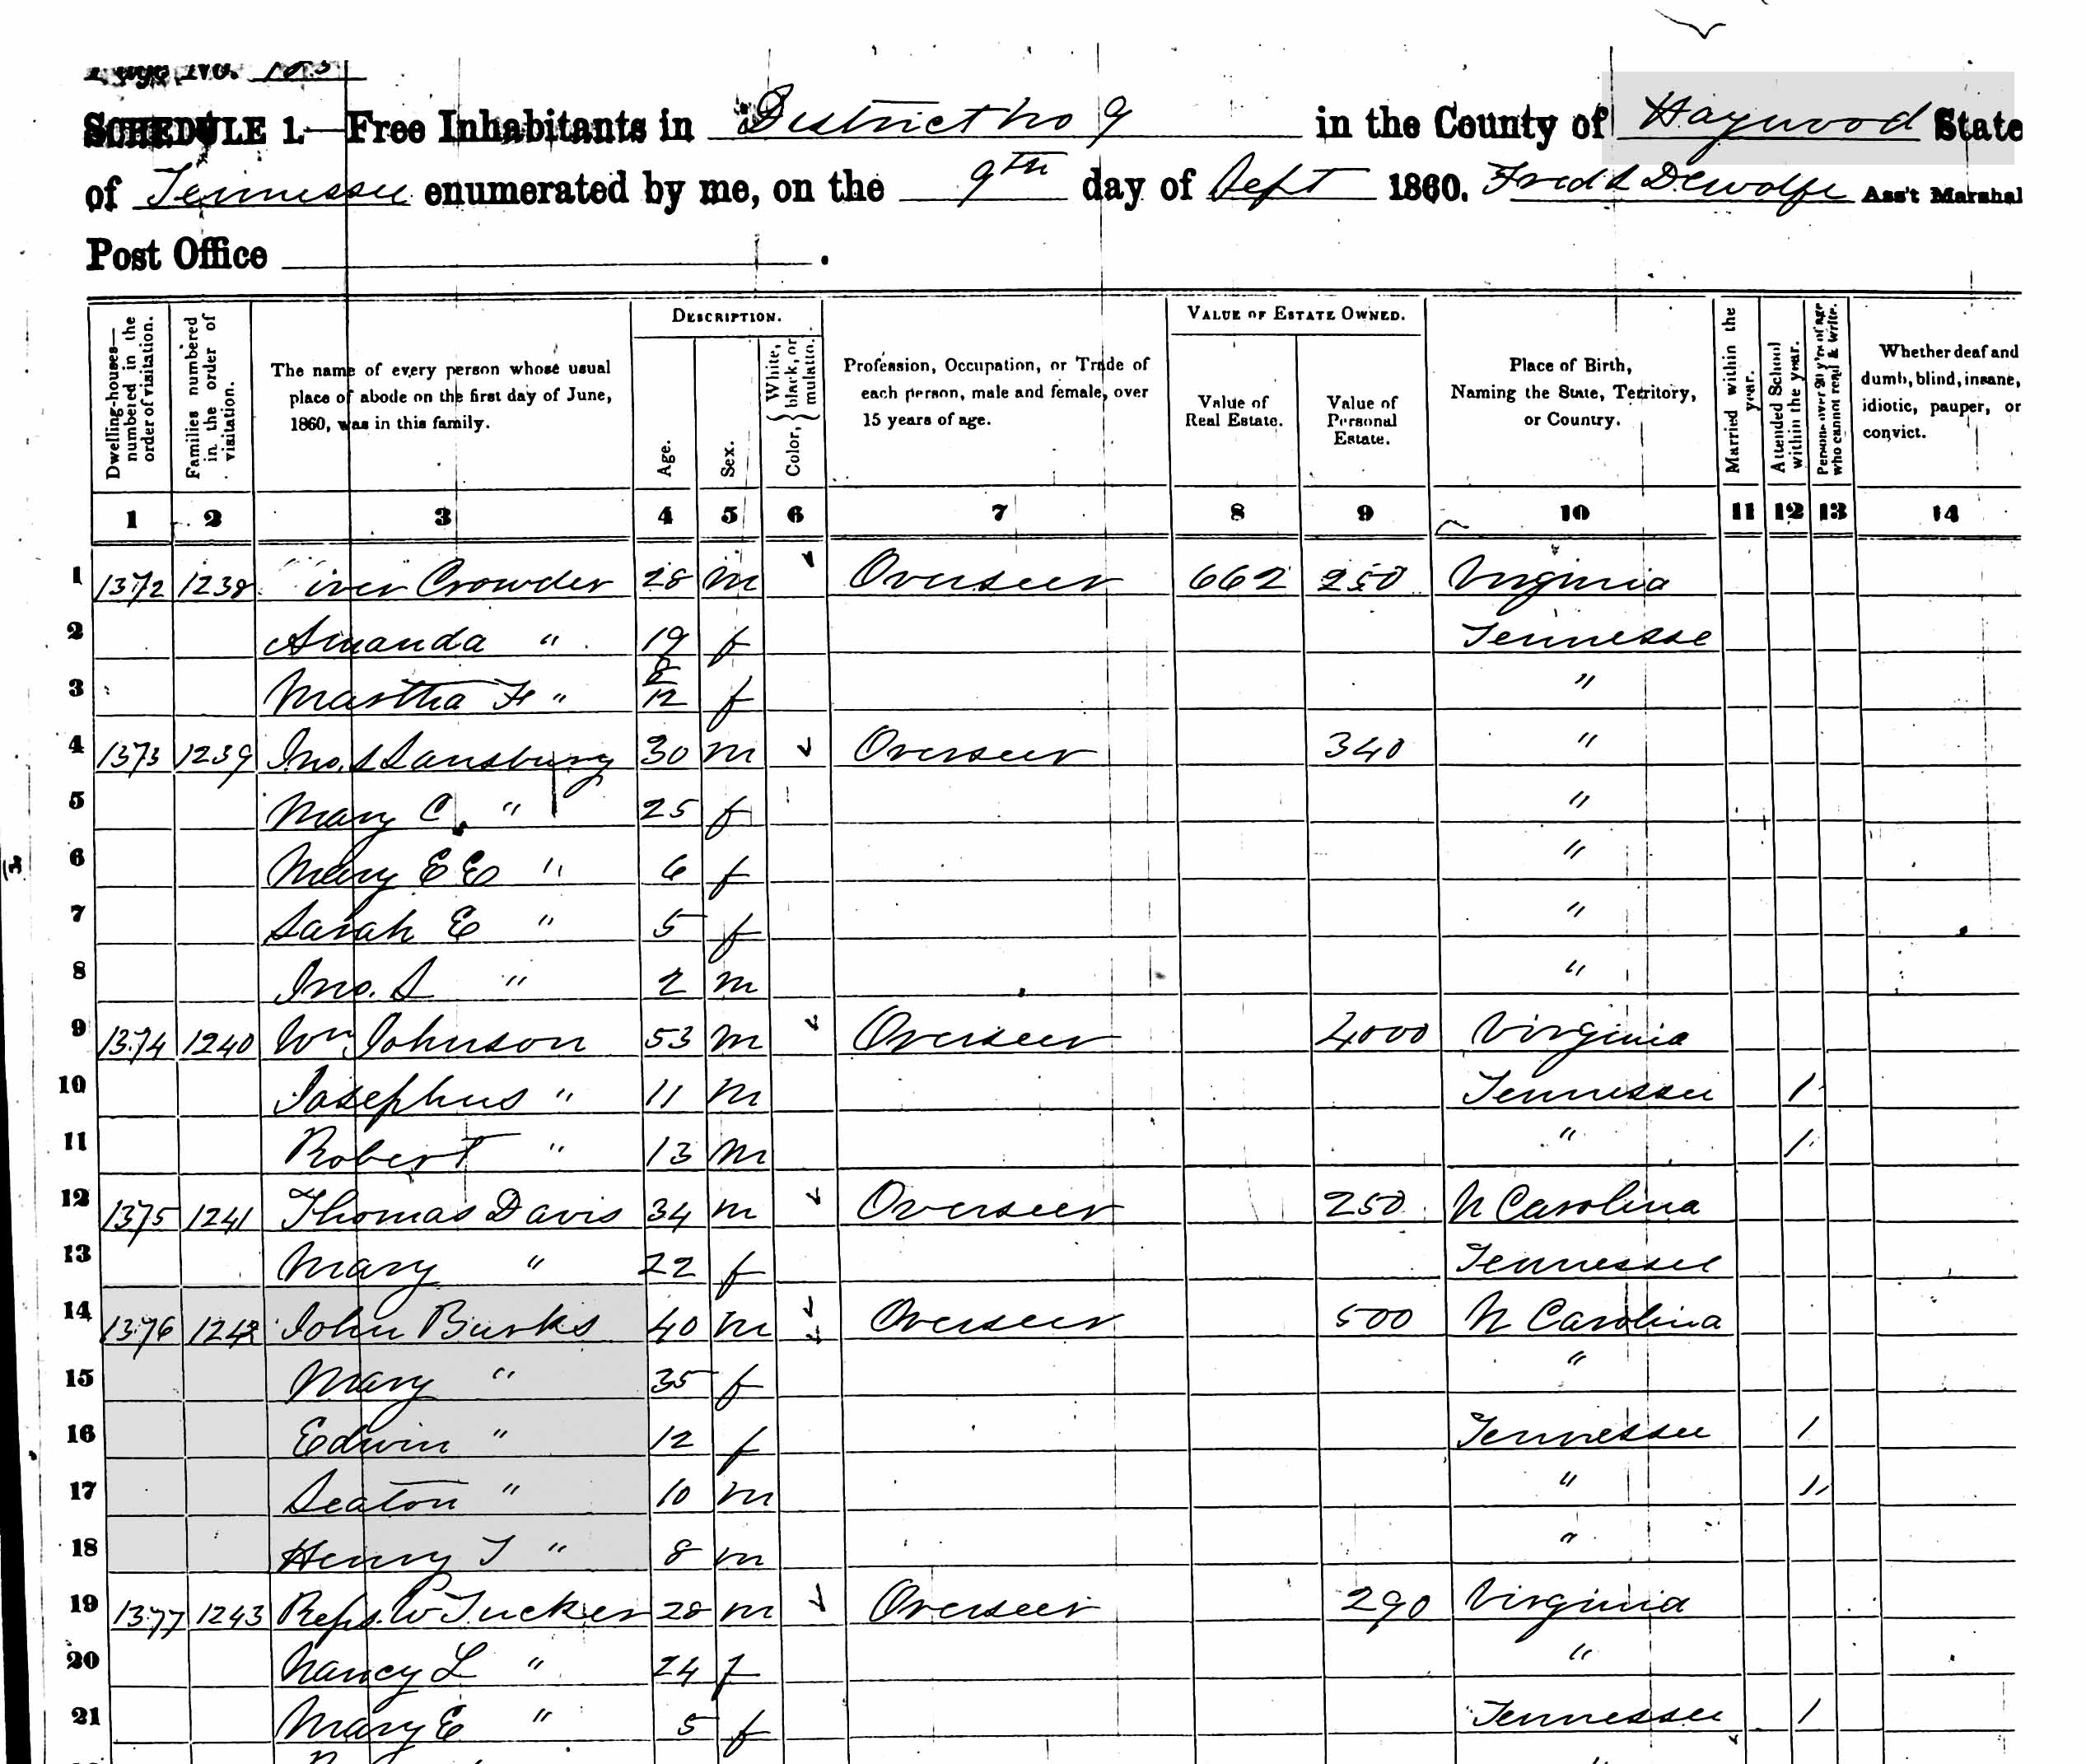 Page No. 183
SCHEDULE 1.—Free Inhabitants in District no 9 in the County of Haywood State
of Tennessee enumerated by me, on the 9th day of Sept 1860. Fred L DeWolfe Ass't Marshal
Post Office .
Dwelling-houses—numbered in the order of visitation.
Families numbered in the order of visitation.
The name of every person whose usual place of abode on the first day of June, 1860, was in this family.
DESCRIPTION.
Age.
Sex.
Color, { White, black, or mulatto. }
Profession, Occupation, or Trade of each person, male and female, over 15 years of age.
VALUE OF ESTATE OWNED.
Value of Real Estate.
Value of Personal Estate.
Place of Birth, Naming the State, Territory, or Country.
Married within the year.
Attended School within the year.
Persons over 20 y'rs of age who cannot read & write.
Whether deaf and dumb, blind, insane, idiotic, pauper, or convict.
1 2 3 4 5 6 7 8 9 10 11 12 13 14
1 1372 1238 Crowder 28 m Overseer 662 250 Virginia
2 Amanda " 19 f Tennesse
3 Martha F " 8/12 f "
4 1373 1239 Jno. S Sansbury 30 m Overseer 340 "
5 Mary C. " 25 f "
6 Mary E E " 6 f "
7 Sarah E " 5 f "
8 Jno. S " 2 m "
9 1374 1240 Wm Johnson 53 m Overseer 4000 Virginia
10 Josephus " 11 m Tennessee 1
11 Robert " 13 m " 1
12 1375 1241 Thomas Davis 34 m Overseer 250 N Carolina
13 Mary " 22 f Tennessee
14 1376 1242 John Burks 40 m Overseer 500 N Carolina
15 Mary " 35 f "
16 Edwin " 12 f Tennessee 1
17 Seaton " 10 m " 1
18 Henry T " 8 m "
19 1377 1243 Reps. W Tucker 28 m Overseer 290 Virginia
20 Nancy L " 24 f "
21 Mary E " 5 f Tennessee 1